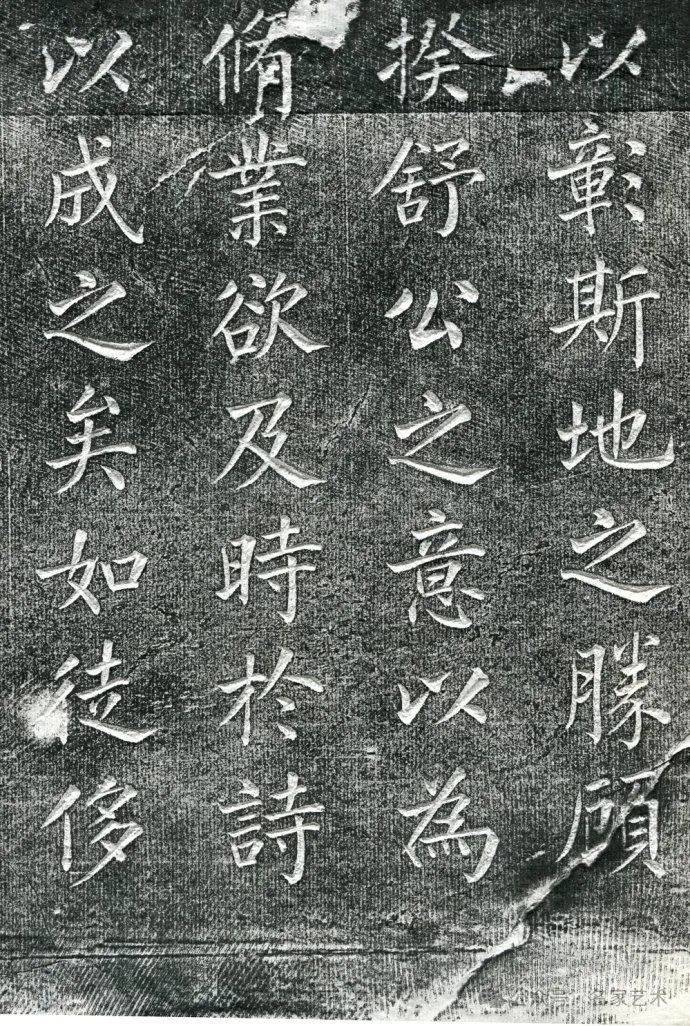 以彰斯地之勝顧
揆舒公之意以為
脩業欲及時於詩
以成之矣如徒侈
公众号·名家艺术